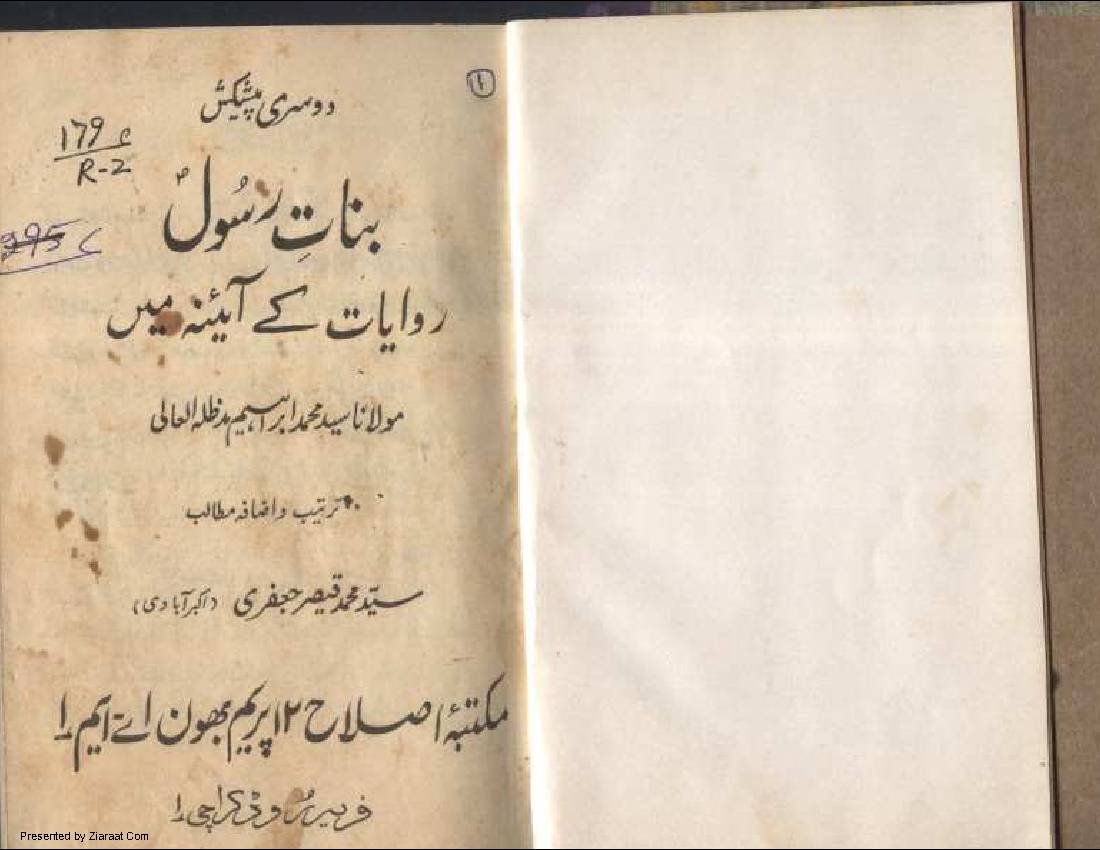 ۱
دوسری پیشکش
179
R-2
بناتِ رسُولؐ
395
روایات کے آیٔنہ میں
مولانا سید محمد ابراہیم مدظلہ العالی
ترتیب و اضافہ مطالب
سیّد محمد قیصر جعفری (اکبر آبادی)
مکتبۂ اصلاح ۱۲ پریم بھون اے ایم ۱
فریر روڈ کراچی ۱
Presented by Ziaraat.Com